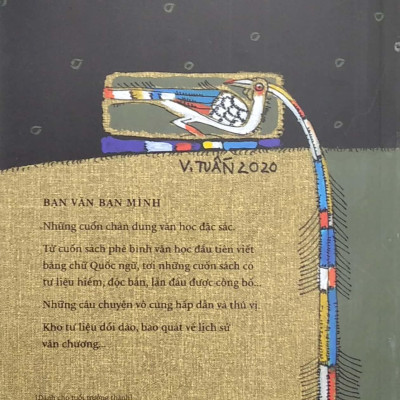 V.TUẤN 2020
BẠN VĂN BẠN MÌNH
Những cuốn chân dung văn học đặc sắc.
Từ cuốn sách phê bình văn học đầu tiên viết
bằng chữ Quốc ngữ, tới những cuốn sách có
tư liệu hiếm, độc bản, lần đầu được công bố...
Những câu chuyện vô cùng hấp dẫn và thú vị.
Kho tư liệu dồi dào, bao quát về lịch sử
văn chương...
[Dành cho tuổi trưởng thành]